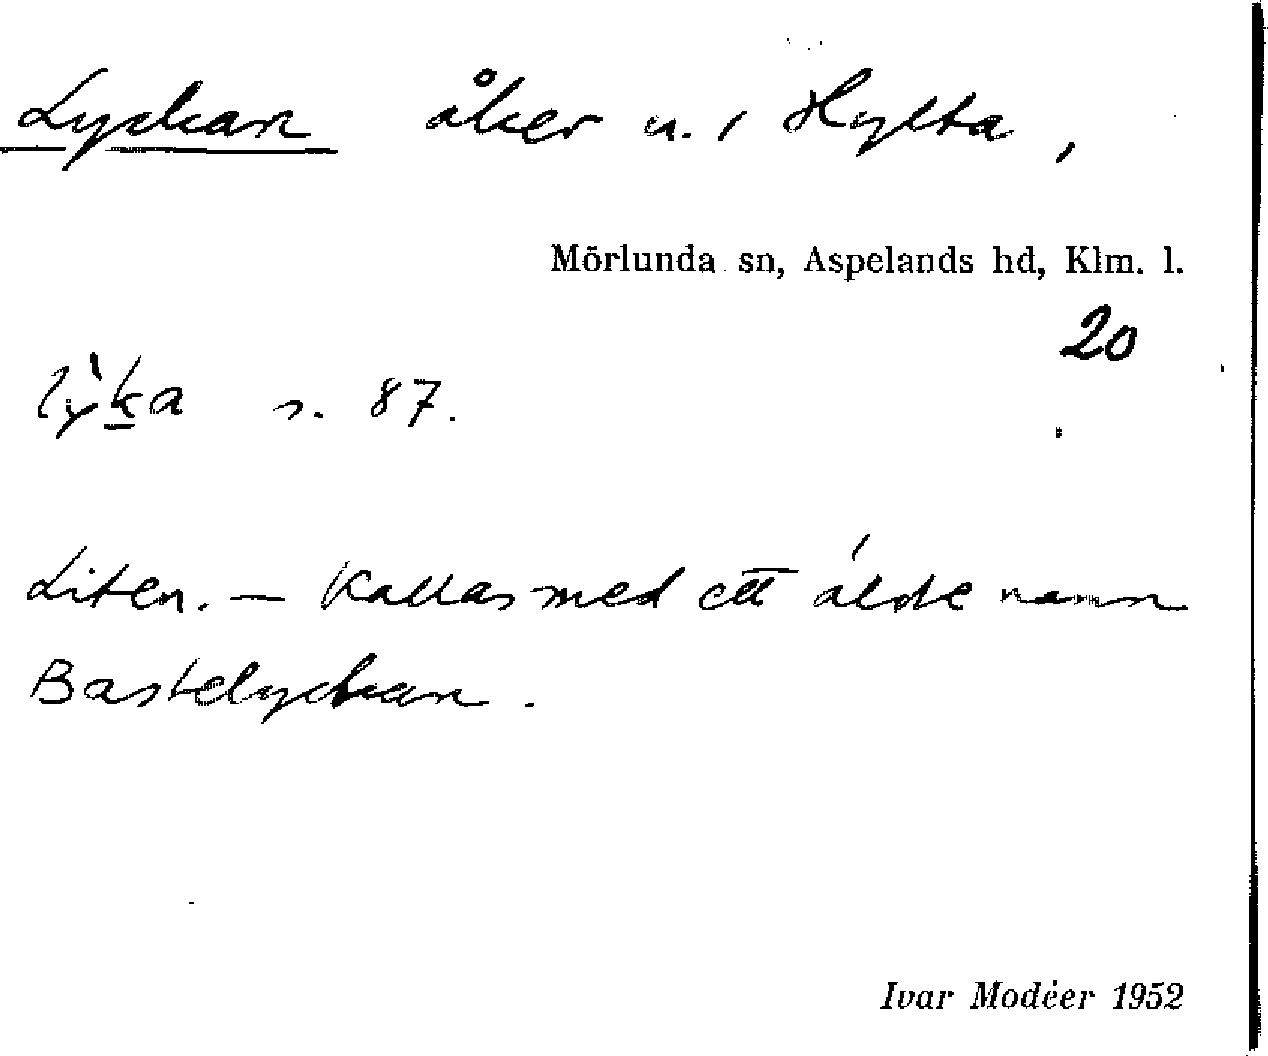 Lyckan åker u. 1 Hylta,
Mörlunda sn, Aspelands hd, Klm. l.
20
lỳka s. 87.
Liten. – Kallas med ett äldre namn
Bastelyckan.
Ivar Modéer 1952